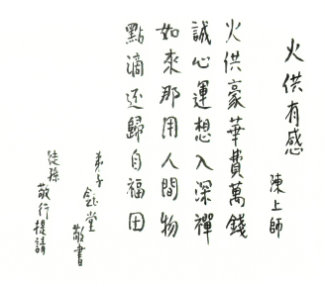 火供有感
陳上師
火供豪華費萬錢
誠心運想入深禪
如來那用人間物
點滴還歸自福田
弟子鈺堂敬書
徒孫敬行提請